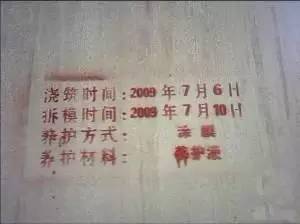 浇筑时间：2009 年 7 月 6 日
拆模时间：2009 年 7 月 10 日
养护方式： 涂膜
养护材料： 养护液